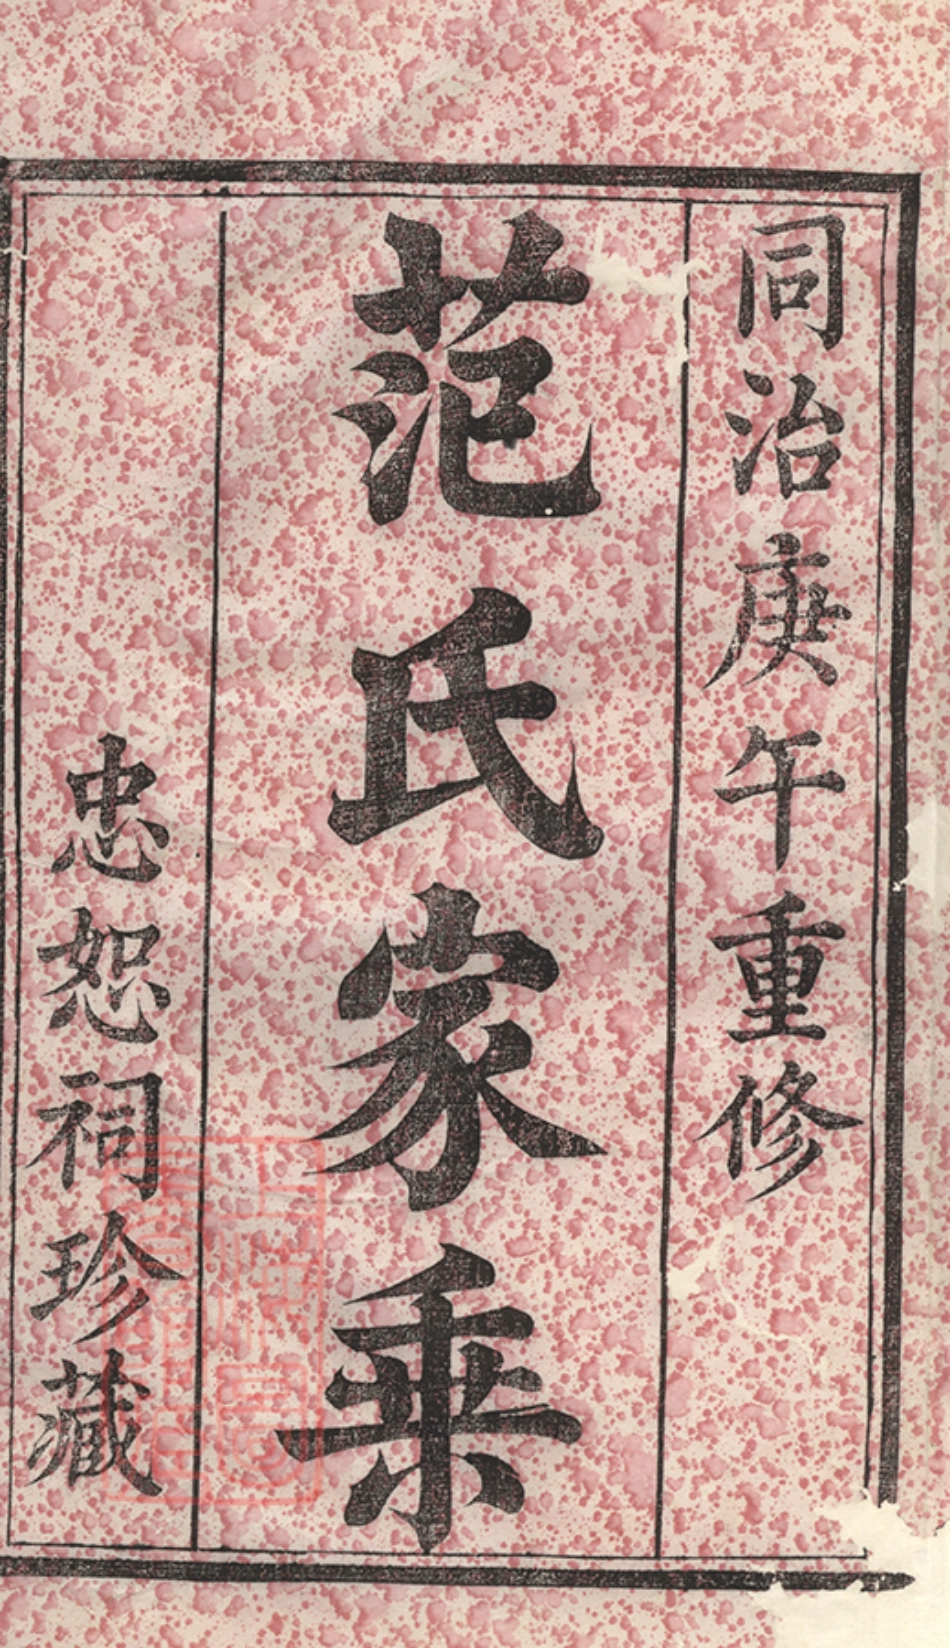 同治庚午重修
范氏家乗
忠恕祠珍藏